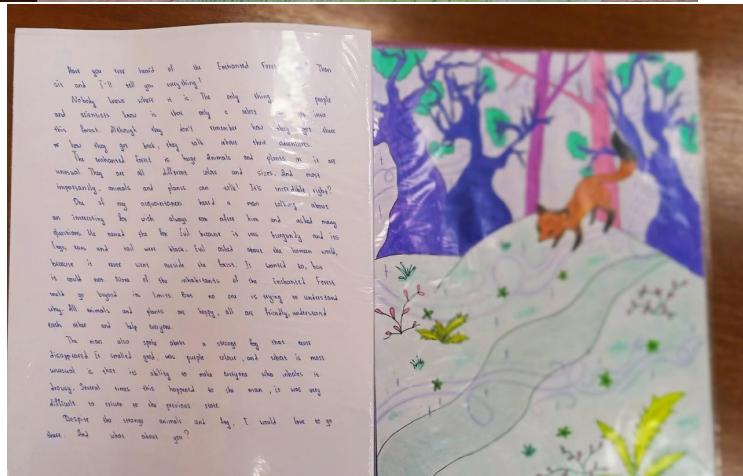 Have you ever heard of the Enchanted Forest? Then
sit and I'll tell you everything!
Nobody knows where it is. The only thing people
and scientists know is that only a select into
this forest. Although they don't remember how they got there
or how they got back, they talk about their adventures.
The enchanted forest is huge. Animals and plants in it are
unusual. They are all different colors and sizes. And most
importantly, animals and plants can talk! It's incredible, right?
One of my acquaintances heard a man talking about
an interesting fox wich always ran after him and asked many
questions. He named the fox because it was burgundy and its
legs, ears and tail were black. asked about the human world,
because it never went outside the forest. It wanted to, but
it could not. None of the inhabitants of the Enchanted Forest
could go beyond its limits. But no one is trying to understand
why. All animals and plants are happy, all are friendly, understand
each other and help everyone.
The man also spoke about a strange fog that
disappeared. It smelled good, was purple colour, and what is most
unusual is that its ability to make everyone who inhales it
drowsy. Several times this happened to the man, it was very
difficult to return to the previous state.
Despite the strange animals and fog, I would love to go
there. And what about you?